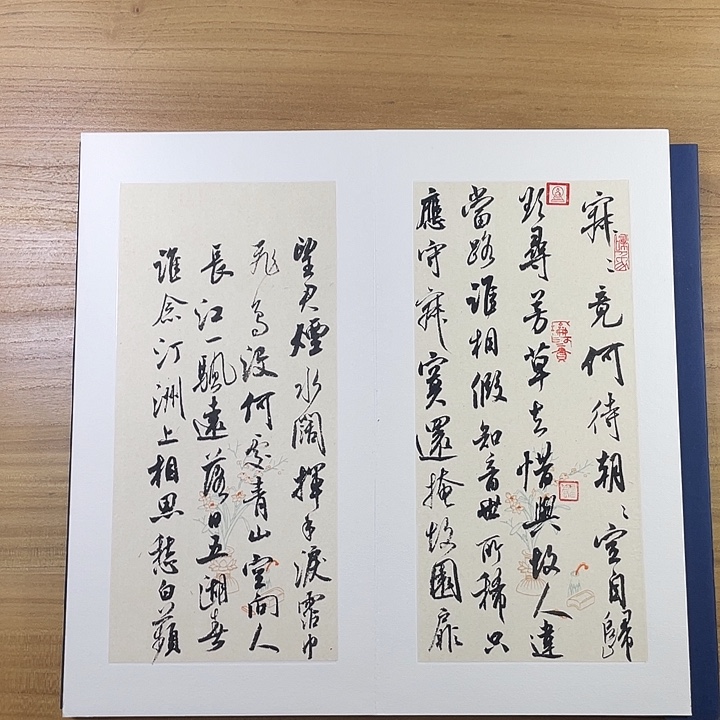 寂〻竟何待朝〻空自歸
欲尋芳草去惜與故人違
當路誰相假知音世所稀只
應守寂寞還掩故園扉
望君煙水闊揮手淚霑巾
飛鳥沒何處青山空向人
長江一颿遠落日五湖春
誰念汀洲上相思愁白蘋